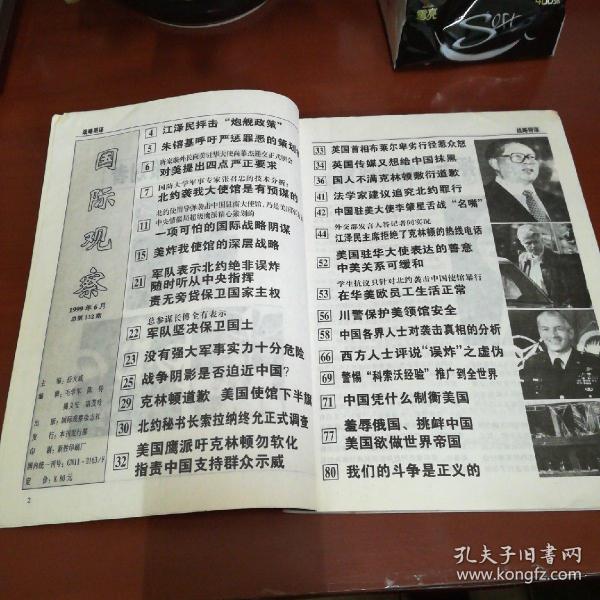 雪亮
400
Soft
战略明译
国际观察
1999年6月
总第112期
主
编
出版
发行:本刊发行部
印刷:新胜印刷厂
国内统一刊号:CN11-2163/F
定价:8.80元
2
4 江泽民抨击“炮舰政策”
5 朱镕基呼吁严惩罪恶的策划
6 对美提出四点严正要求
国防大学军事专家张召忠的技术分析:
7 北约袭我大使馆是有预谋的
中央情报局超级魔派精心策划的
11 一项可怕的国际战略阴谋
15 美炸我使馆的深层战略
21 军队表示北约绝非误炸
随时听从中央指挥
责无旁贷保卫国家主权
总参谋长傅全有表示
22 军队坚决保卫国土
23 没有强大军事实力十分危险
25 战争阴影是否迫近中国?
29 克林顿道歉 美国使馆下半旗
30 北约秘书长索拉纳终允正式调查
32 美国鹰派吁克林顿勿软化
指责中国支持群众示威
33 英国首相布莱尔卑劣行径惹众怒
34 英国传媒又想给中国抹黑
36 国人不满克林顿敷衍道歉
41 法学家建议追究北约罪行
42 中国驻美大使李肇星舌战“名嘴”
外交部发言人答记者问实况
44 江泽民主席拒绝了克林顿的热线电话
52 美国驻华大使表达的善意
中美关系可缓和
学生抗议只针对北约袭击中国使馆暴行
53 在华美欧员工生活正常
56 川警保护美领馆安全
58 中国各界人士对袭击真相的分析
66 西方人士评说“误炸”之虚伪
69 警惕“科索沃经验”推广到全世界
71 中国凭什么制衡美国
77 羞辱俄国、挑衅中国
美国欲做世界帝国
80 我们的斗争是正义的
孔夫子旧书网
www.kongfz.com